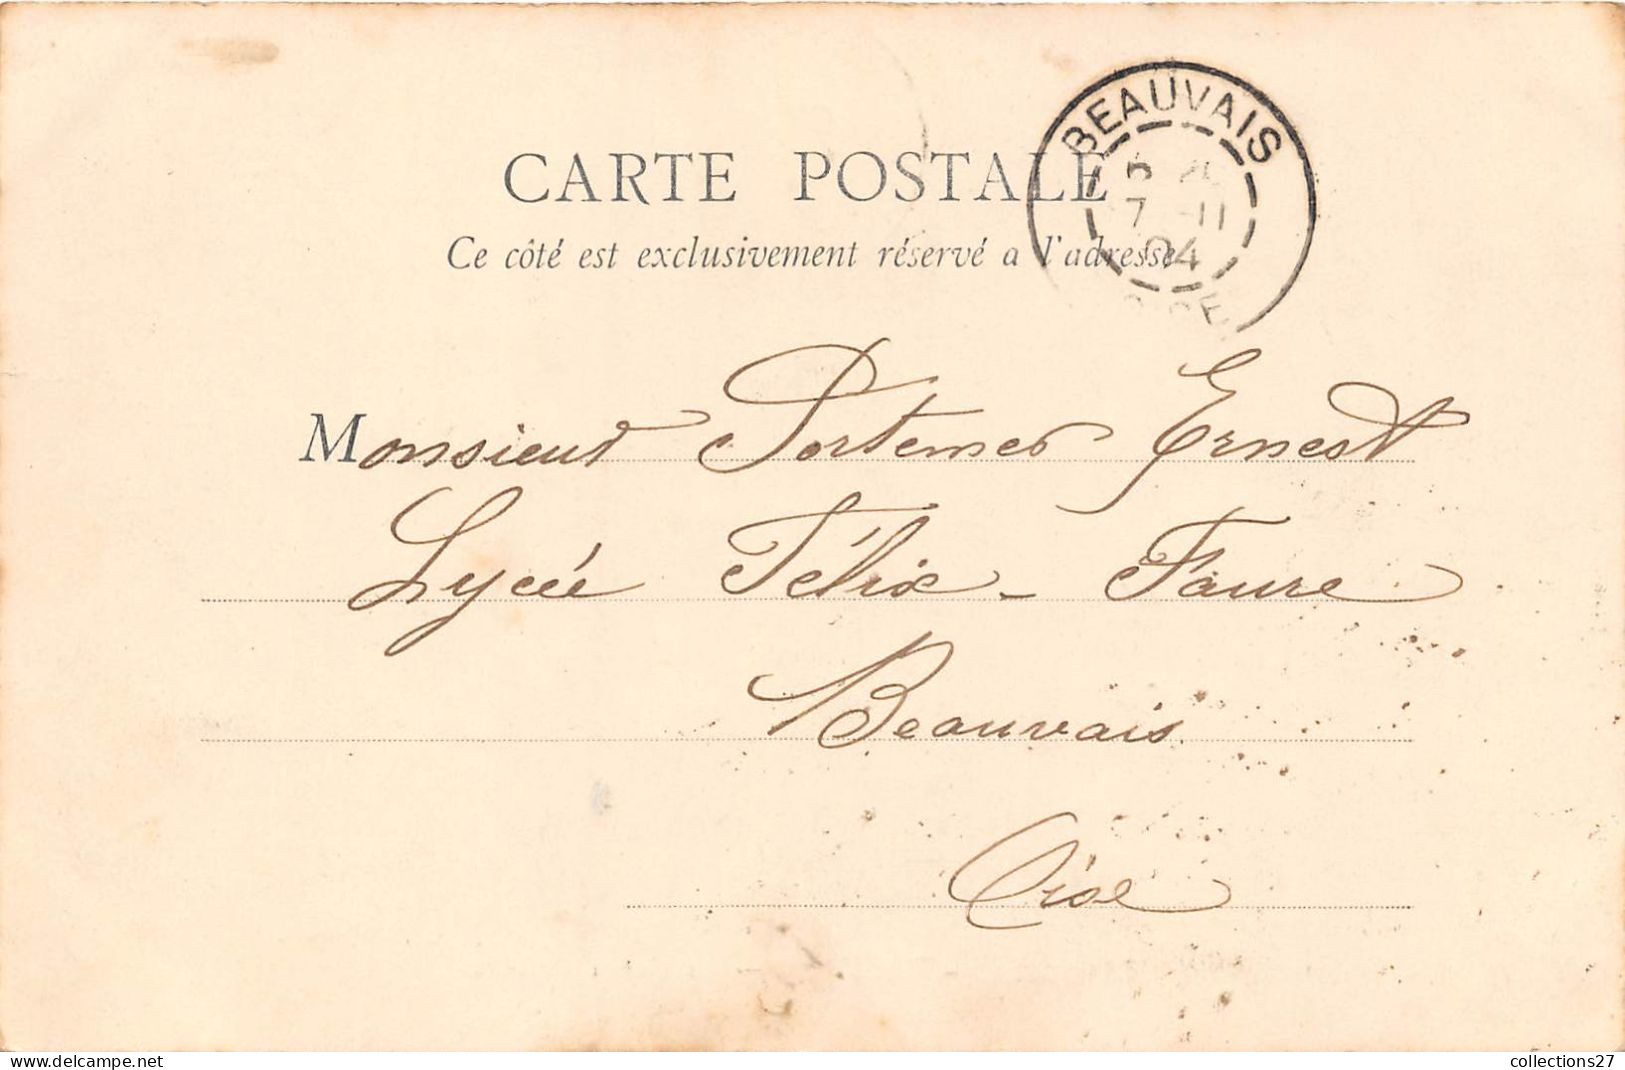 CARTE POSTALE
Ce côté est exclusivement réservé a l'adresse
BEAUVAIS
7 -11
04
OISE
Monsieur Portemer Ernest
Lycée Félix-Faure
Beauvais
Oise
https://www.delcampe.net
collections27